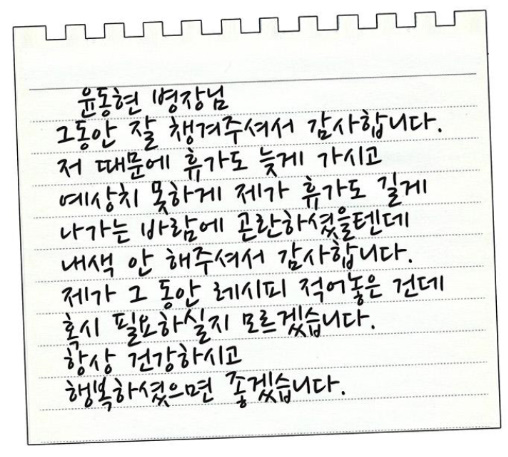 윤동현 병장님
그동안 잘 챙겨주셔서 감사합니다.
저 때문에 휴가도 늦게 가시고
예상치 못하게 제가 휴가도 길게
나가는 바람에 곤란하셨을텐데
내색 안 해주셔서 감사합니다.
제가 그 동안 레시피 적어놓은 건데
혹시 필요하실지 모르겠습니다.
항상 건강하시고
행복하셨으면 좋겠습니다.